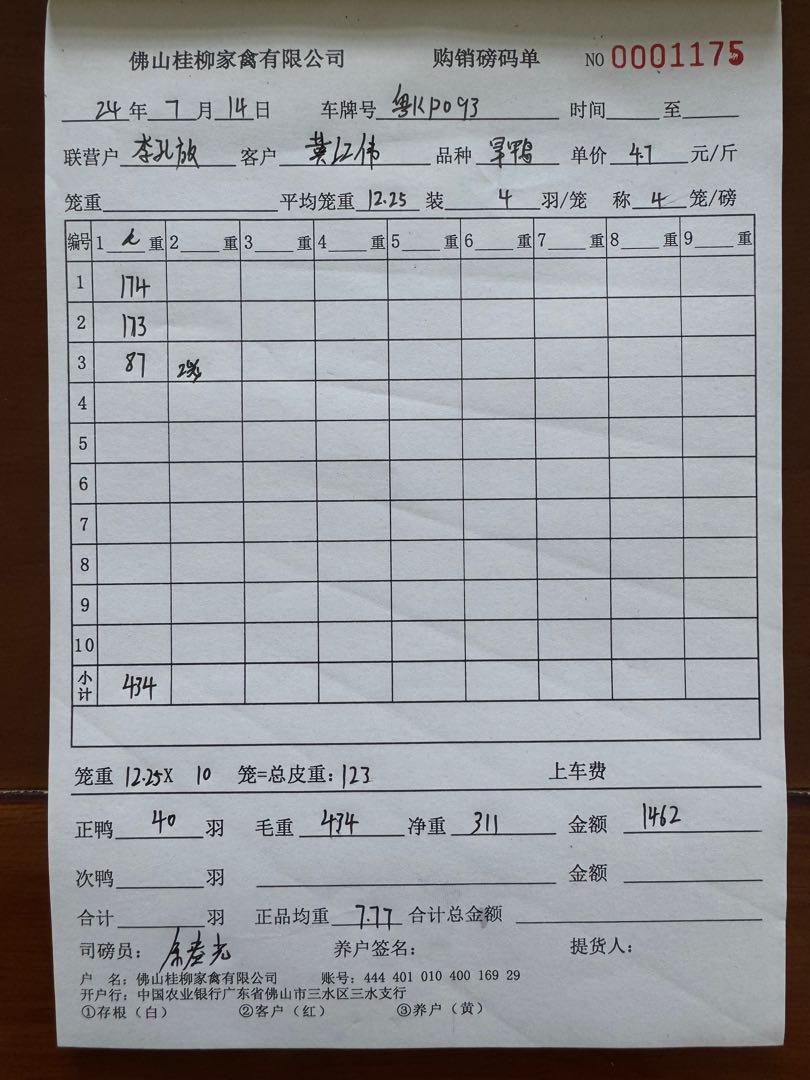 佛山桂柳家禽有限公司 购销磅码单 NO 0001175
24 年 7 月 14 日 车牌号 粤KP093 时间 至
联营户 李孔放 客户 黄江伟 品种 旱鸭 单价 4.7 元/斤
笼重 平均笼重 12.25 装 4 羽/笼 称 4 笼/磅
编号 1 重 2 重 3 重 4 重 5 重 6 重 7 重 8 重 9 重
1 174
2 173
3 87 2笼
4
5
6
7
8
9
10
小计 434
笼重 12.25X 10 笼=总皮重: 123 上车费
正鸭 40 羽 毛重 434 净重 311 金额 1462
次鸭 羽 金额
合计 羽 正品均重 7.77 合计总金额
司磅员: 养户签名: 提货人:
户 名: 佛山桂柳家禽有限公司 账号: 444 401 010 400 169 29
开户行: 中国农业银行广东省佛山市三水区三水支行
①存根（白） ②客户（红） ③养户（黄）